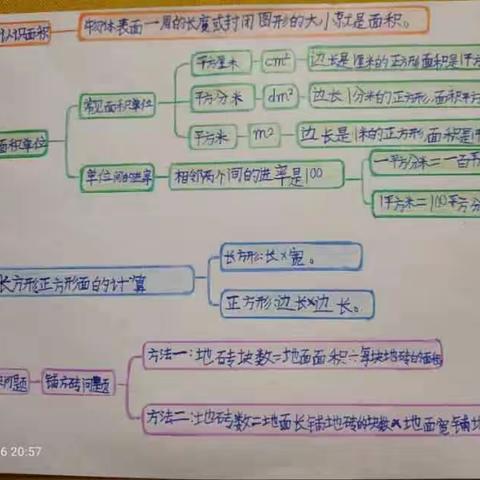 认识面积
物体表面一周的长度或封闭图形的大小就是面积。
面积单位
常见面积单位
平方厘米
cm²
边长是1厘米的正方形面积是1平方
平方分米
dm²
边长1分米的正方形,面积平方
平方米
m²
边长是1米的正方形,面积是
单位间的进率
相邻两个间的进率是100
一平方分米=一百平
1平方米=100平方分
长方形正方形面的计算
长方形:长×宽。
正方形:边长×边长。
问题
铺方砖问题
方法一:地砖块数=地面面积÷每块地砖的面积
方法二:地砖数=地面长铺地砖的块数×地面宽铺地
6 20:57